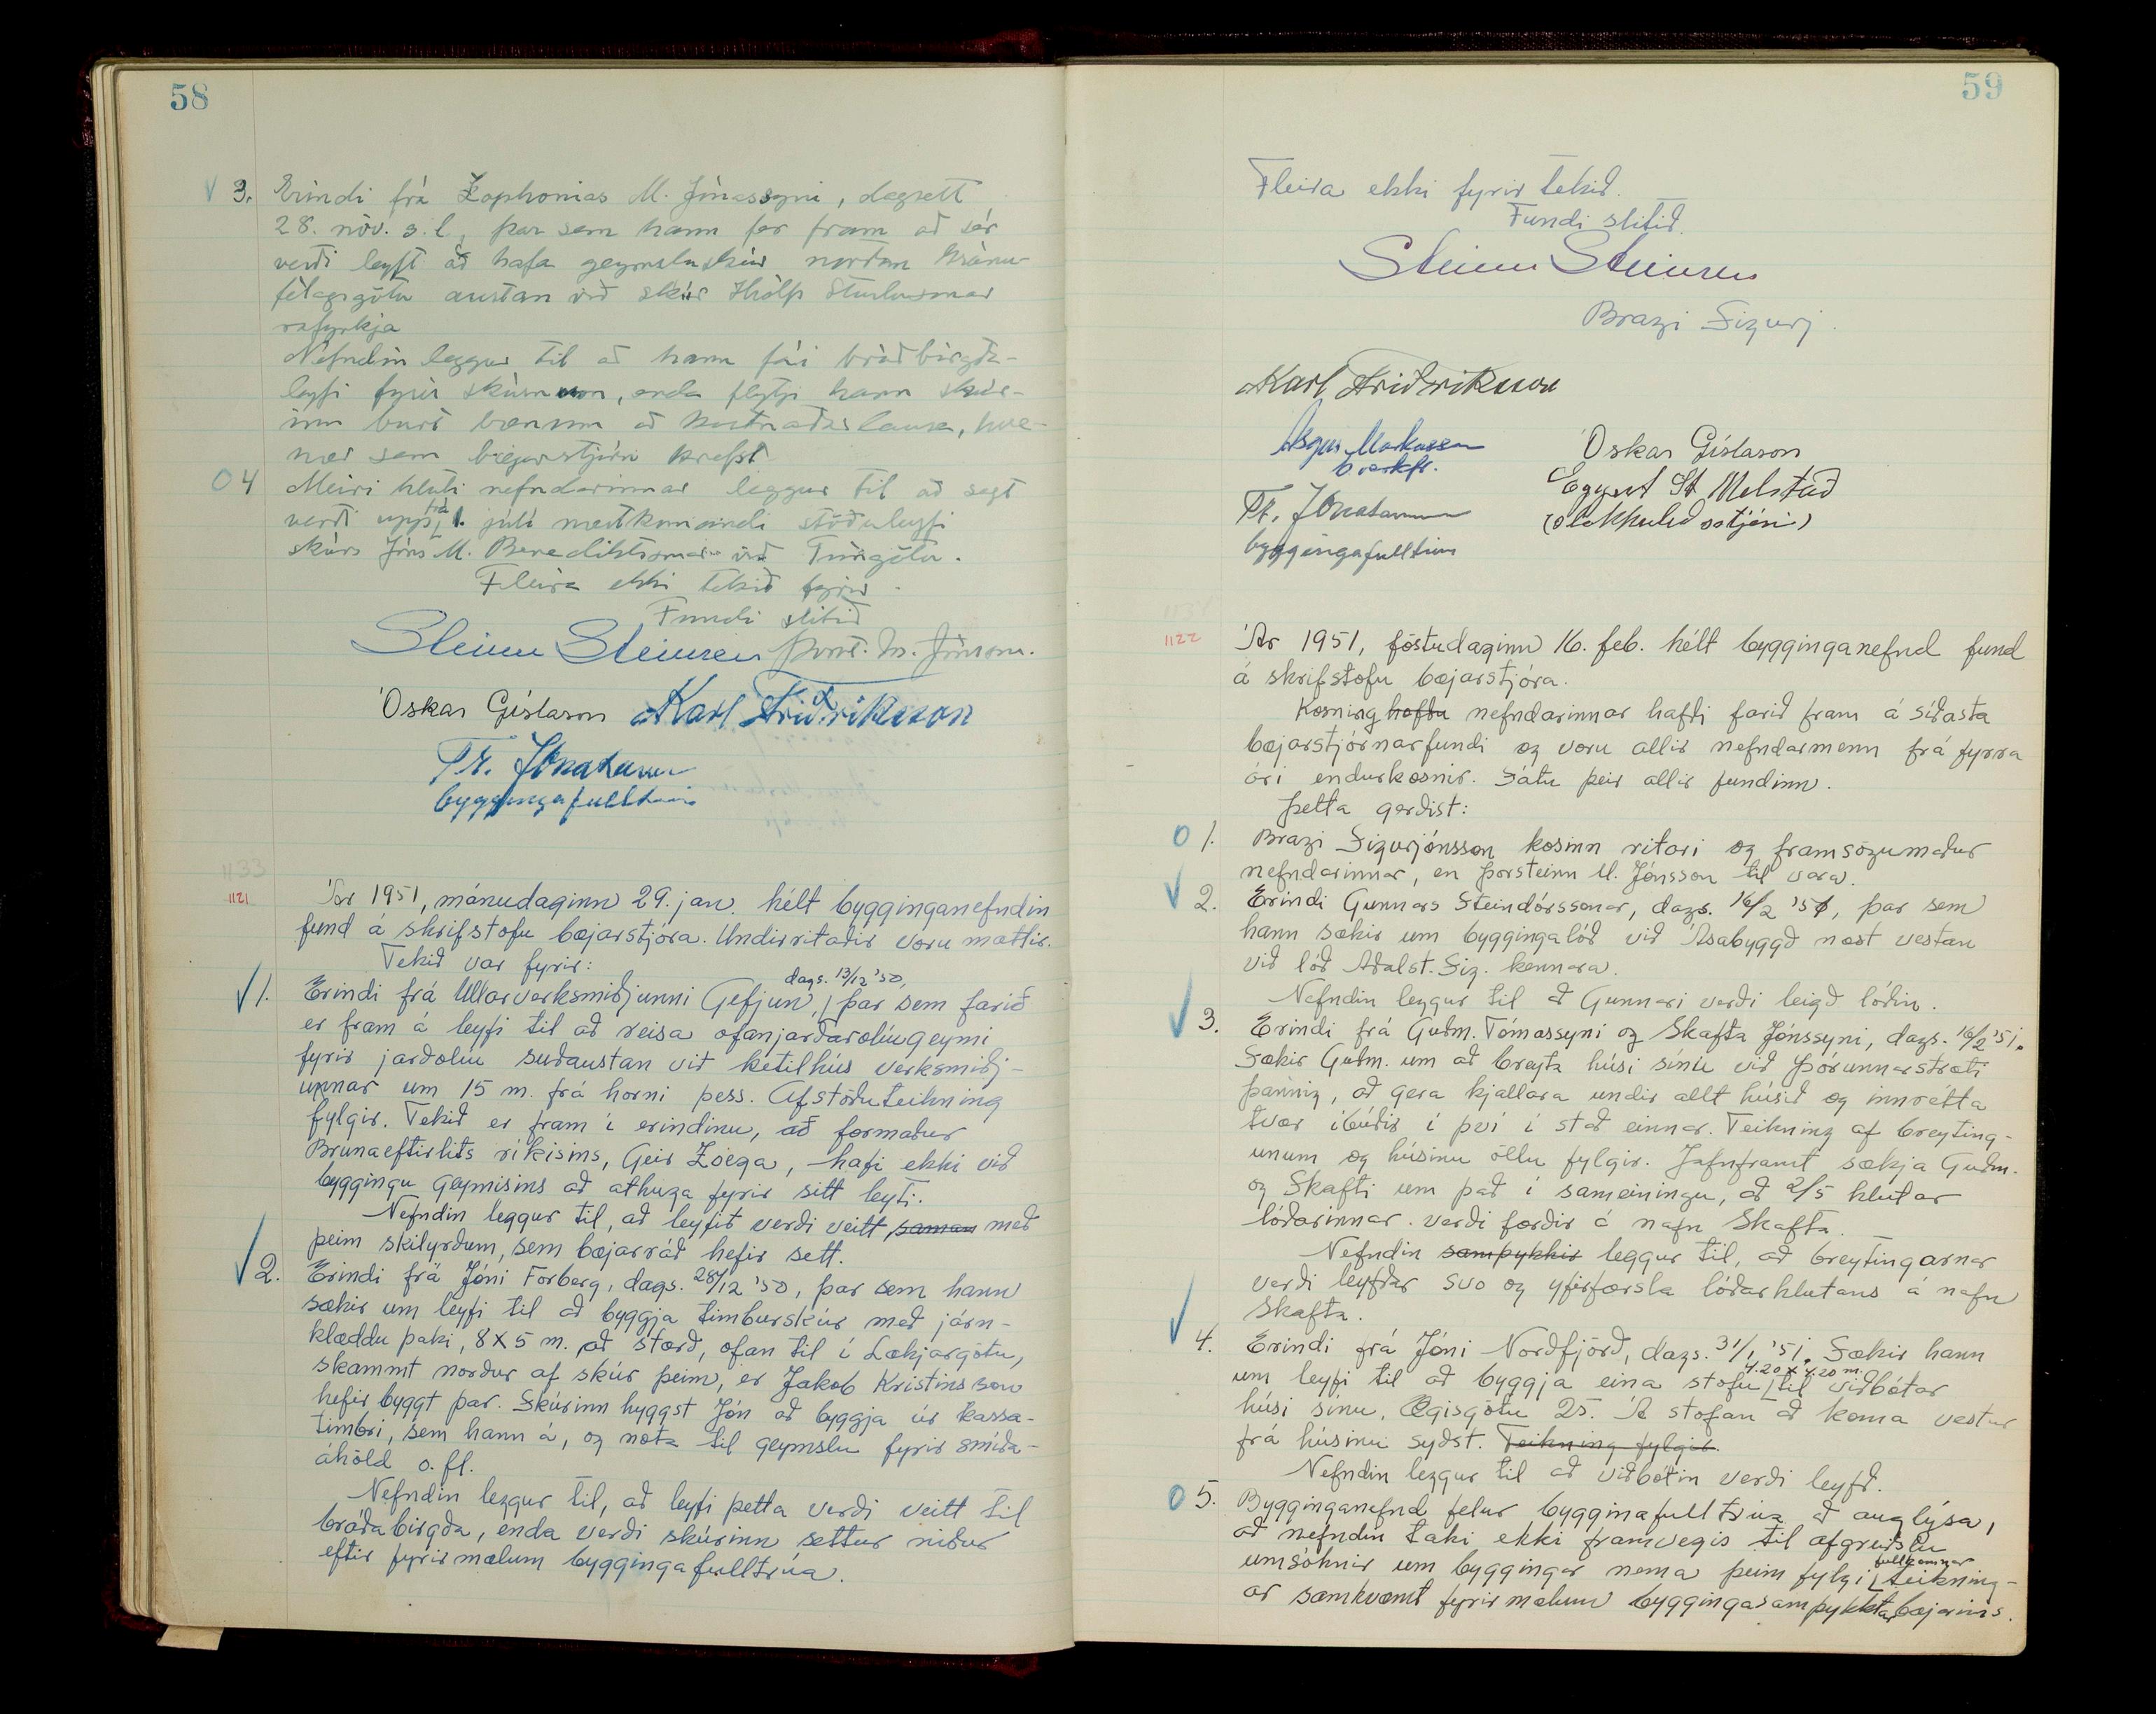 58
3. Erindi frá Zophonias M. Jónassyni, dagsett
28. nóv. s.l., þar sem hann fer fram að sér
verði leyft að hafa geymsluskúr norðan Gránu-
félagsgötu austan við skúr Þórólfs Sturlusonar
rafyrkja
Nefndin leggur til að hann fái bráðbirgða-
leyfi fyrir skúrnum, enda flytji hann skúr-
inn burt bænum að kostnaðarlausu, hve-
nær sem bæjarstjórn krefst
04 Meiri hluti nefndarinnar leggur til að sagt
verði upp frá 1. júlí næstkomandi stöðuleyfi
skúrs Jóns M. Benediktssonar við Túngötu.
Fleira ekki tekið fyrir.
Fundi slitið
Steinn Steinsen Þorst. M. Jónsson.
Óskar Gíslason Karl Friðriksson
Tr. Jónatansson
byggingafulltrúi
1133
1121
Ár 1951, mánudaginn 29. jan. hélt bygginganefndin
fund á skrifstofu bæjarstjóra. Undirritaðir voru mættir.
Tekið var fyrir:
dags. 13/12 '50,
1. Erindi frá Ullarverksmiðjunni Gefjun, þar sem farið
er fram á leyfi til að reisa ofanjarðarolíugeymi
fyrir jarðolíu suðaustan við ketilhús verksmiðj-
unnar um 15 m. frá horni þess. Afstöðuteikning
fylgir. Tekið er fram í erindinu, að formaður
Brunaeftirlits ríkisins, Geir Zoega, hafi ekki við
byggingu geymisins að athuga fyrir sitt leyti.
Nefndin leggur til, að leyfið verði veitt saman með
þeim skilyrðum, sem bæjarráð hefir sett.
2. Erindi frá Jóni Forberg, dags. 28/12 '50, þar sem hann
sækir um leyfi til að byggja timburskúr með járn-
klæddu þaki, 8 x 5 m. að stærð, ofan til í Lækjargötu,
skammt norður af skúr þeim, er Jakob Kristinsson
hefir byggt þar. Skúrinn hyggst Jón að byggja úr kassa-
timbri, sem hann á, og nota til geymslu fyrir smíða-
áhöld o. fl.
Nefndin leggur til, að leyfi þetta verði veitt til
bráðabirgða, enda verði skúrinn settur niður
eftir fyrirmælum byggingafulltrúa.
59
Fleira ekki fyrir tekið.
Fundi slitið.
Steinn Steinsen
Bragi Sigurj.
Karl Friðriksson
Ásgeir Markússon
b.verkfr.
Óskar Gíslason
Eggert St Melstað
(slökkviliðsstjóri)
Tr. Jónatansson
byggingafulltrúi
1122
Ár 1951, föstudaginn 16. feb. hélt bygginganefnd fund
á skrifstofu bæjarstjóra.
Kosning hafðu nefndarinnar hafði farið fram á síðasta
bæjarstjórnarfundi og voru allir nefndarmenn frá fyrra
ári endurkosnir. Sátu þeir allir fundinn.
Þetta gerðist:
0 1. Bragi Sigurjónsson kosinn ritari og framsögumaður
nefndarinnar, en Þorsteinn M. Jónsson til vara.
2. Erindi Gunnars Steindórssonar, dags. 16/2 '51, þar sem
hann sækir um byggingalóð við Ásabyggð næst vestan
við lóð Aðalst. Sig. kennara.
Nefndin leggur til að Gunnari verði leigð lóðin.
3. Erindi frá Guðm. Tómassyni og Skafta Jónssyni, dags. 16/2 '51.
Sækir Guðm. um að breyta húsi sínu við Þórunnarstræti
þannig, að gera kjallara undir allt húsið og innrétta
tvær íbúðir í því í stað einnar. Teikning af breyting-
unum og húsinu öllu fylgir. Jafnframt sækja Guðm.
og Skafti um það í sameiningu, að 2/5 hlutar
lóðarinnar verði færðir á nafn Skafta.
Nefndin samþykkir leggur til, að breytingarnar
verði leyfðar svo og yfirfærsla lóðarhlutans á nafn
Skafta.
4. Erindi frá Jóni Norðfjörð, dags. 31/1 '51. Sækir hann
4.20 x 4.20 m.
um leyfi til að byggja eina stofu til viðbótar
húsi sínu, Ægisgötu 25. Á stofan að koma vestur
frá húsinu syðst. Teikning fylgir.
Nefndin leggur til að viðbótin verði leyfð.
0 5. Bygginganefnd felur bygginafulltrúa að auglýsa,
að nefndin taki ekki framvegis til afgreiðslu
umsóknir um byggingar nema þeim fylgi fullkomnar teikning-
ar samkvæmt fyrirmælum byggingasamþykktar bæjarins.